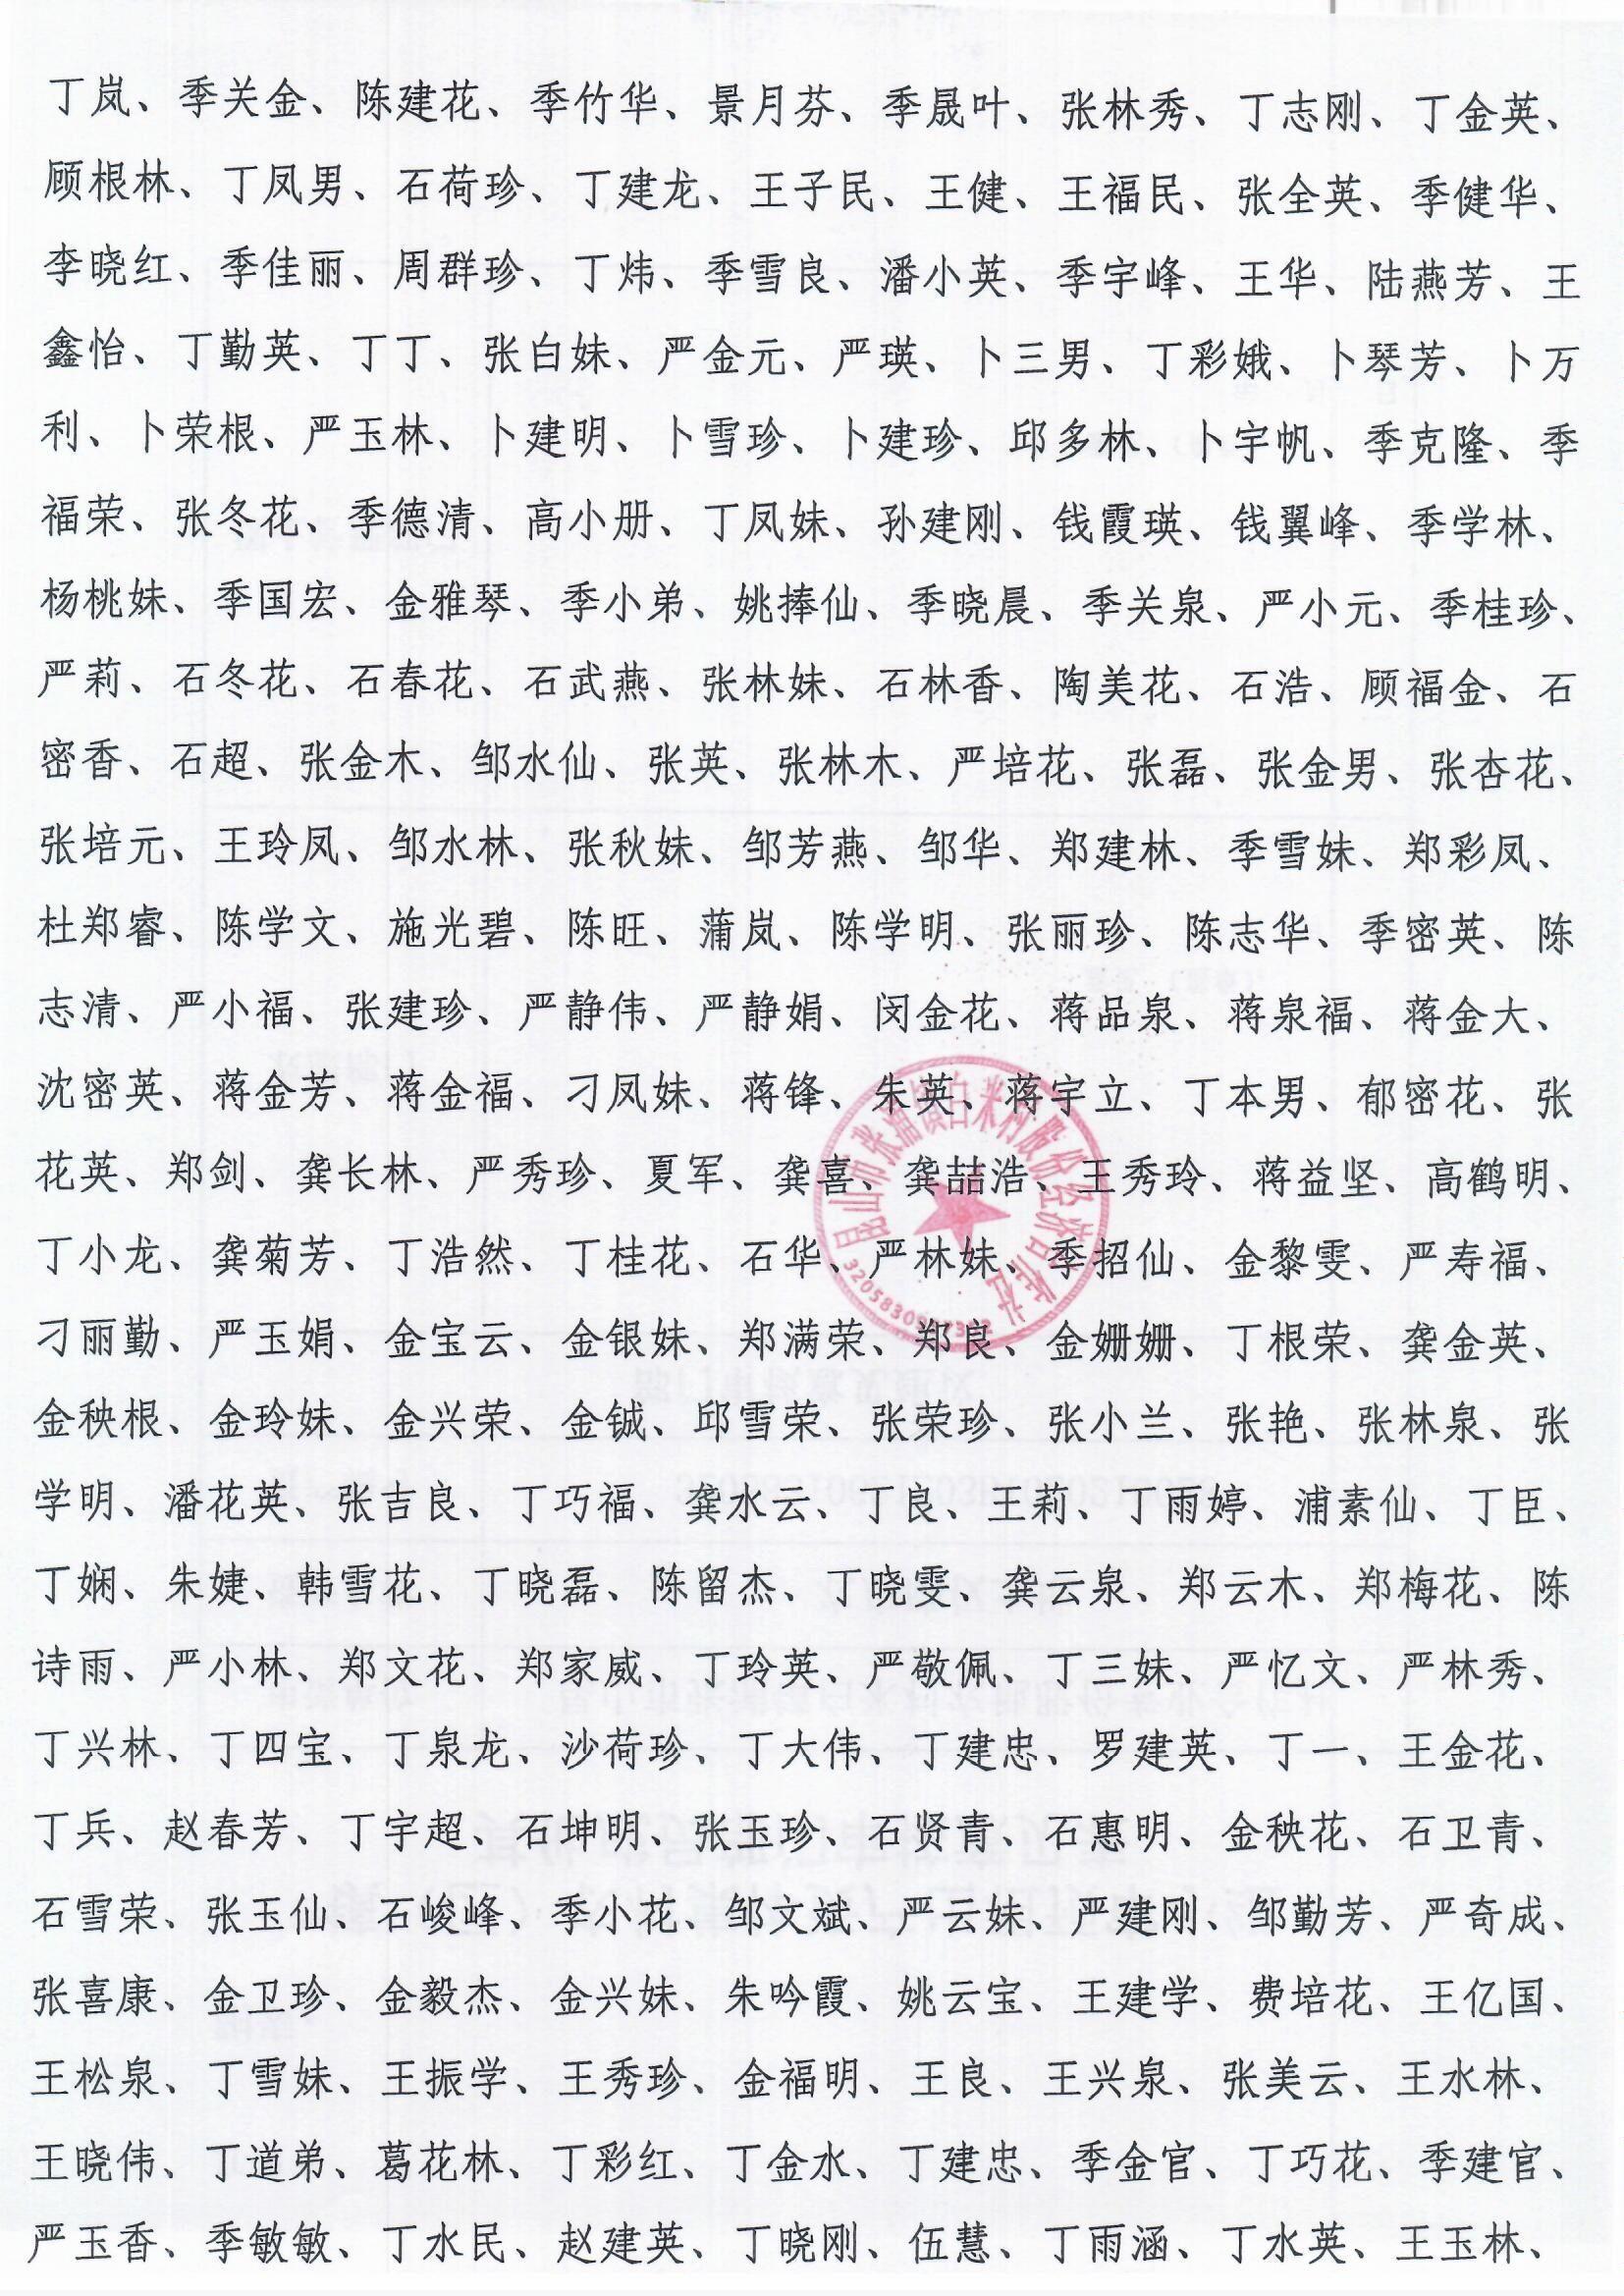 丁岚、季关金、陈建花、季竹华、景月芬、季晟叶、张林秀、丁志刚、丁金英、
顾根林、丁凤男、石荷珍、丁建龙、王子民、王健、王福民、张全英、季健华、
李晓红、季佳丽、周群珍、丁炜、季雪良、潘小英、季宇峰、王华、陆燕芳、王
鑫怡、丁勤英、丁丁、张白妹、严金元、严瑛、卜三男、丁彩娥、卜琴芳、卜万
利、卜荣根、严玉林、卜建明、卜雪珍、卜建珍、邱多林、卜宇帆、季克隆、季
福荣、张冬花、季德清、高小册、丁凤妹、孙建刚、钱霞瑛、钱翼峰、季学林、
杨桃妹、季国宏、金雅琴、季小弟、姚捧仙、季晓晨、季关泉、严小元、季桂珍、
严莉、石冬花、石春花、石武燕、张林妹、石林香、陶美花、石浩、顾福金、石
密香、石超、张金木、邹水仙、张英、张林木、严培花、张磊、张金男、张杏花、
张培元、王玲凤、邹水林、张秋妹、邹芳燕、邹华、郑建林、季雪妹、郑彩凤、
杜郑睿、陈学文、施光碧、陈旺、蒲岚、陈学明、张丽珍、陈志华、季密英、陈
志清、严小福、张建珍、严静伟、严静娟、闵金花、蒋品泉、蒋泉福、蒋金大、
沈密英、蒋金芳、蒋金福、刁凤妹、蒋锋、朱英、蒋宇立、丁本男、郁密花、张
花英、郑剑、龚长林、严秀珍、夏军、龚喜、龚喆浩、王秀玲、蒋益坚、高鹤明、
丁小龙、龚菊芳、丁浩然、丁桂花、石华、严林妹、季招仙、金黎雯、严寿福、
刁丽勤、严玉娟、金宝云、金银妹、郑满荣、郑良、金姗姗、丁根荣、龚金英、
金秧根、金玲妹、金兴荣、金铖、邱雪荣、张荣珍、张小兰、张艳、张林泉、张
学明、潘花英、张吉良、丁巧福、龚水云、丁良、王莉、丁雨婷、浦素仙、丁臣、
丁娴、朱婕、韩雪花、丁晓磊、陈留杰、丁晓雯、龚云泉、郑云木、郑梅花、陈
诗雨、严小林、郑文花、郑家威、丁玲英、严敬佩、丁三妹、严忆文、严林秀、
丁兴林、丁四宝、丁泉龙、沙荷珍、丁大伟、丁建忠、罗建英、丁一、王金花、
丁兵、赵春芳、丁宇超、石坤明、张玉珍、石贤青、石惠明、金秧花、石卫青、
石雪荣、张玉仙、石峻峰、季小花、邹文斌、严云妹、严建刚、邹勤芳、严奇成、
张喜康、金卫珍、金毅杰、金兴妹、朱吟霞、姚云宝、王建学、费培花、王亿国、
王松泉、丁雪妹、王振学、王秀珍、金福明、王良、王兴泉、张美云、王水林、
王晓伟、丁道弟、葛花林、丁彩红、丁金水、丁建忠、季金官、丁巧花、季建官、
严玉香、季敏敏、丁水民、赵建英、丁晓刚、伍慧、丁雨涵、丁水英、王玉林、
昆山市张浦镇白米村股份经济合作社